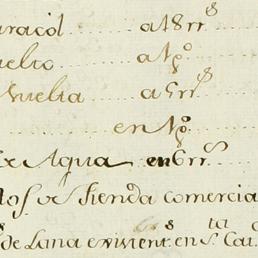 aracol a 18 rr^s
uelto a 1 p^o
Vuelta a 5 rr^s
en 1 p^o
de Agua en 6 rr^s
tos de Tienda comercia
^s de Lana existent. en S.^ta Cat